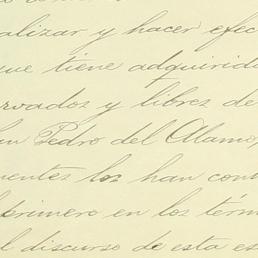 alizar y hacer efec
que tiene adquirido
rvados y libres de
an Pedro del Alamo,
uentes los han com
primero en los térm
l discurso de esta es